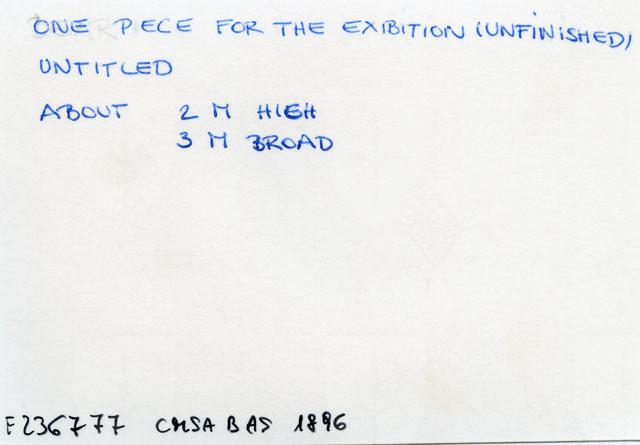 ONE PIECE FOR THE EXIBITION (UNFINISHED)
UNTITLED
ABOUT 2 M HIGH
3 M BROAD
F236777 CMSA BAS 1896